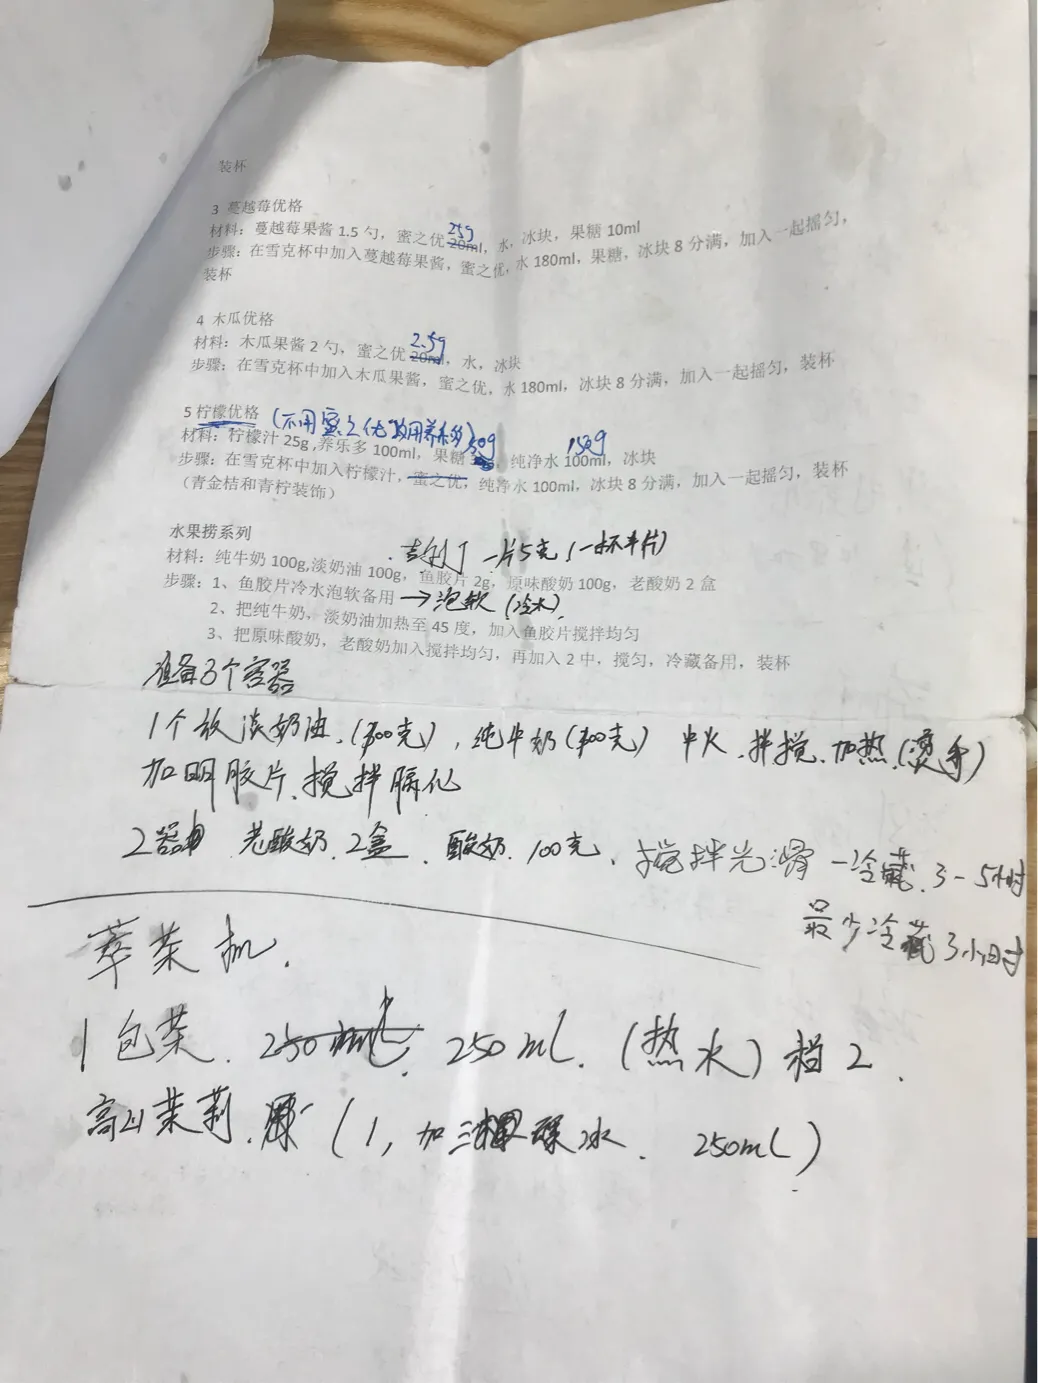 装杯
3 蔓越莓优格
25g
材料：蔓越莓果酱 1.5 勺，蜜之优 20ml，水，冰块，果糖 10ml
步骤：在雪克杯中加入蔓越莓果酱，蜜之优，水 180ml，果糖，冰块 8 分满，加入一起摇匀，
装杯
4 木瓜优格
2.5g
材料：木瓜果酱 2 勺，蜜之优 20ml，水，冰块
步骤：在雪克杯中加入木瓜果酱，蜜之优，水 180ml，冰块 8 分满，加入一起摇匀，装杯
5 柠檬优格（不用蜜之优 改用养乐多）
50g 150g
材料：柠檬汁 25g,养乐多 100ml，果糖，纯净水 100ml，冰块
步骤：在雪克杯中加入柠檬汁，蜜之优，纯净水 100ml，冰块 8 分满，加入一起摇匀，装杯
（青金桔和青柠装饰）
水果捞系列
吉利丁 一片5克（一杯半片）
材料：纯牛奶 100g,淡奶油 100g，鱼胶片 2g，原味酸奶 100g，老酸奶 2 盒
步骤：1、鱼胶片冷水泡软备用 →泡软（冷水）
2、把纯牛奶，淡奶油加热至 45 度，加入鱼胶片搅拌均匀
3、把原味酸奶，老酸奶加入搅拌均匀，再加入 2 中，搅匀，冷藏备用，装杯
准备3个容器
1个放淡奶油（克），纯牛奶（克）中火、拌搅、加热（烫手）
加明胶片、搅拌融化
2器 老酸奶 2盒、酸奶 100克、搅拌光滑－冷藏 3－5小时
最少冷藏3小时
萃茶机.
1包茶. 250ml. 250ml.（热水）档2.
高山茉莉.（1, 加三 冰. 250ml）